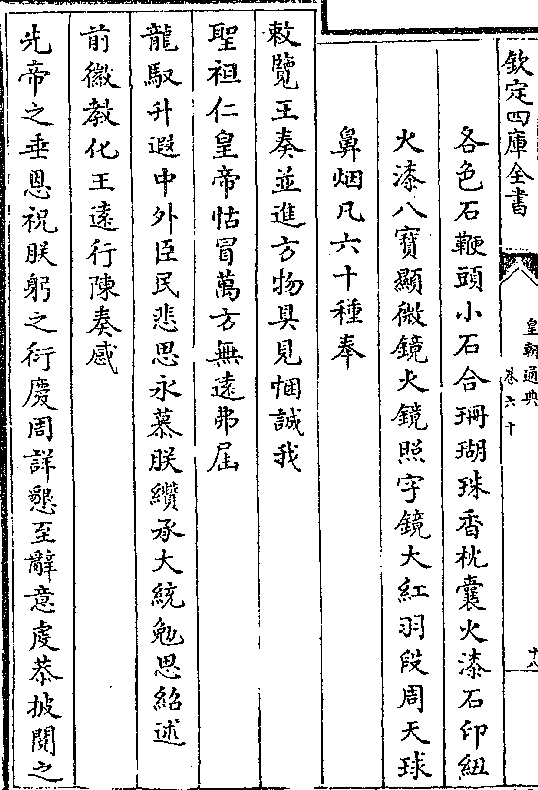 欽定四庫全書
皇朝通典
卷六十
十八
各色石鞭頭小石合珊瑚珠香枕囊火漆石印紐
火漆八寶顯微鏡火鏡照字鏡大紅羽段周天球
鼻烟凡六十種奉
敕覽王奏並進方物具見悃誠我
聖祖仁皇帝怙冒萬方無遠弗屆
龍馭升遐中外臣民悲思永慕朕纘承大統勉思紹述
前徽教化王遠行陳奏感
先帝之垂恩祝朕躬之衍慶周詳懇至辭意虔恭披閱之